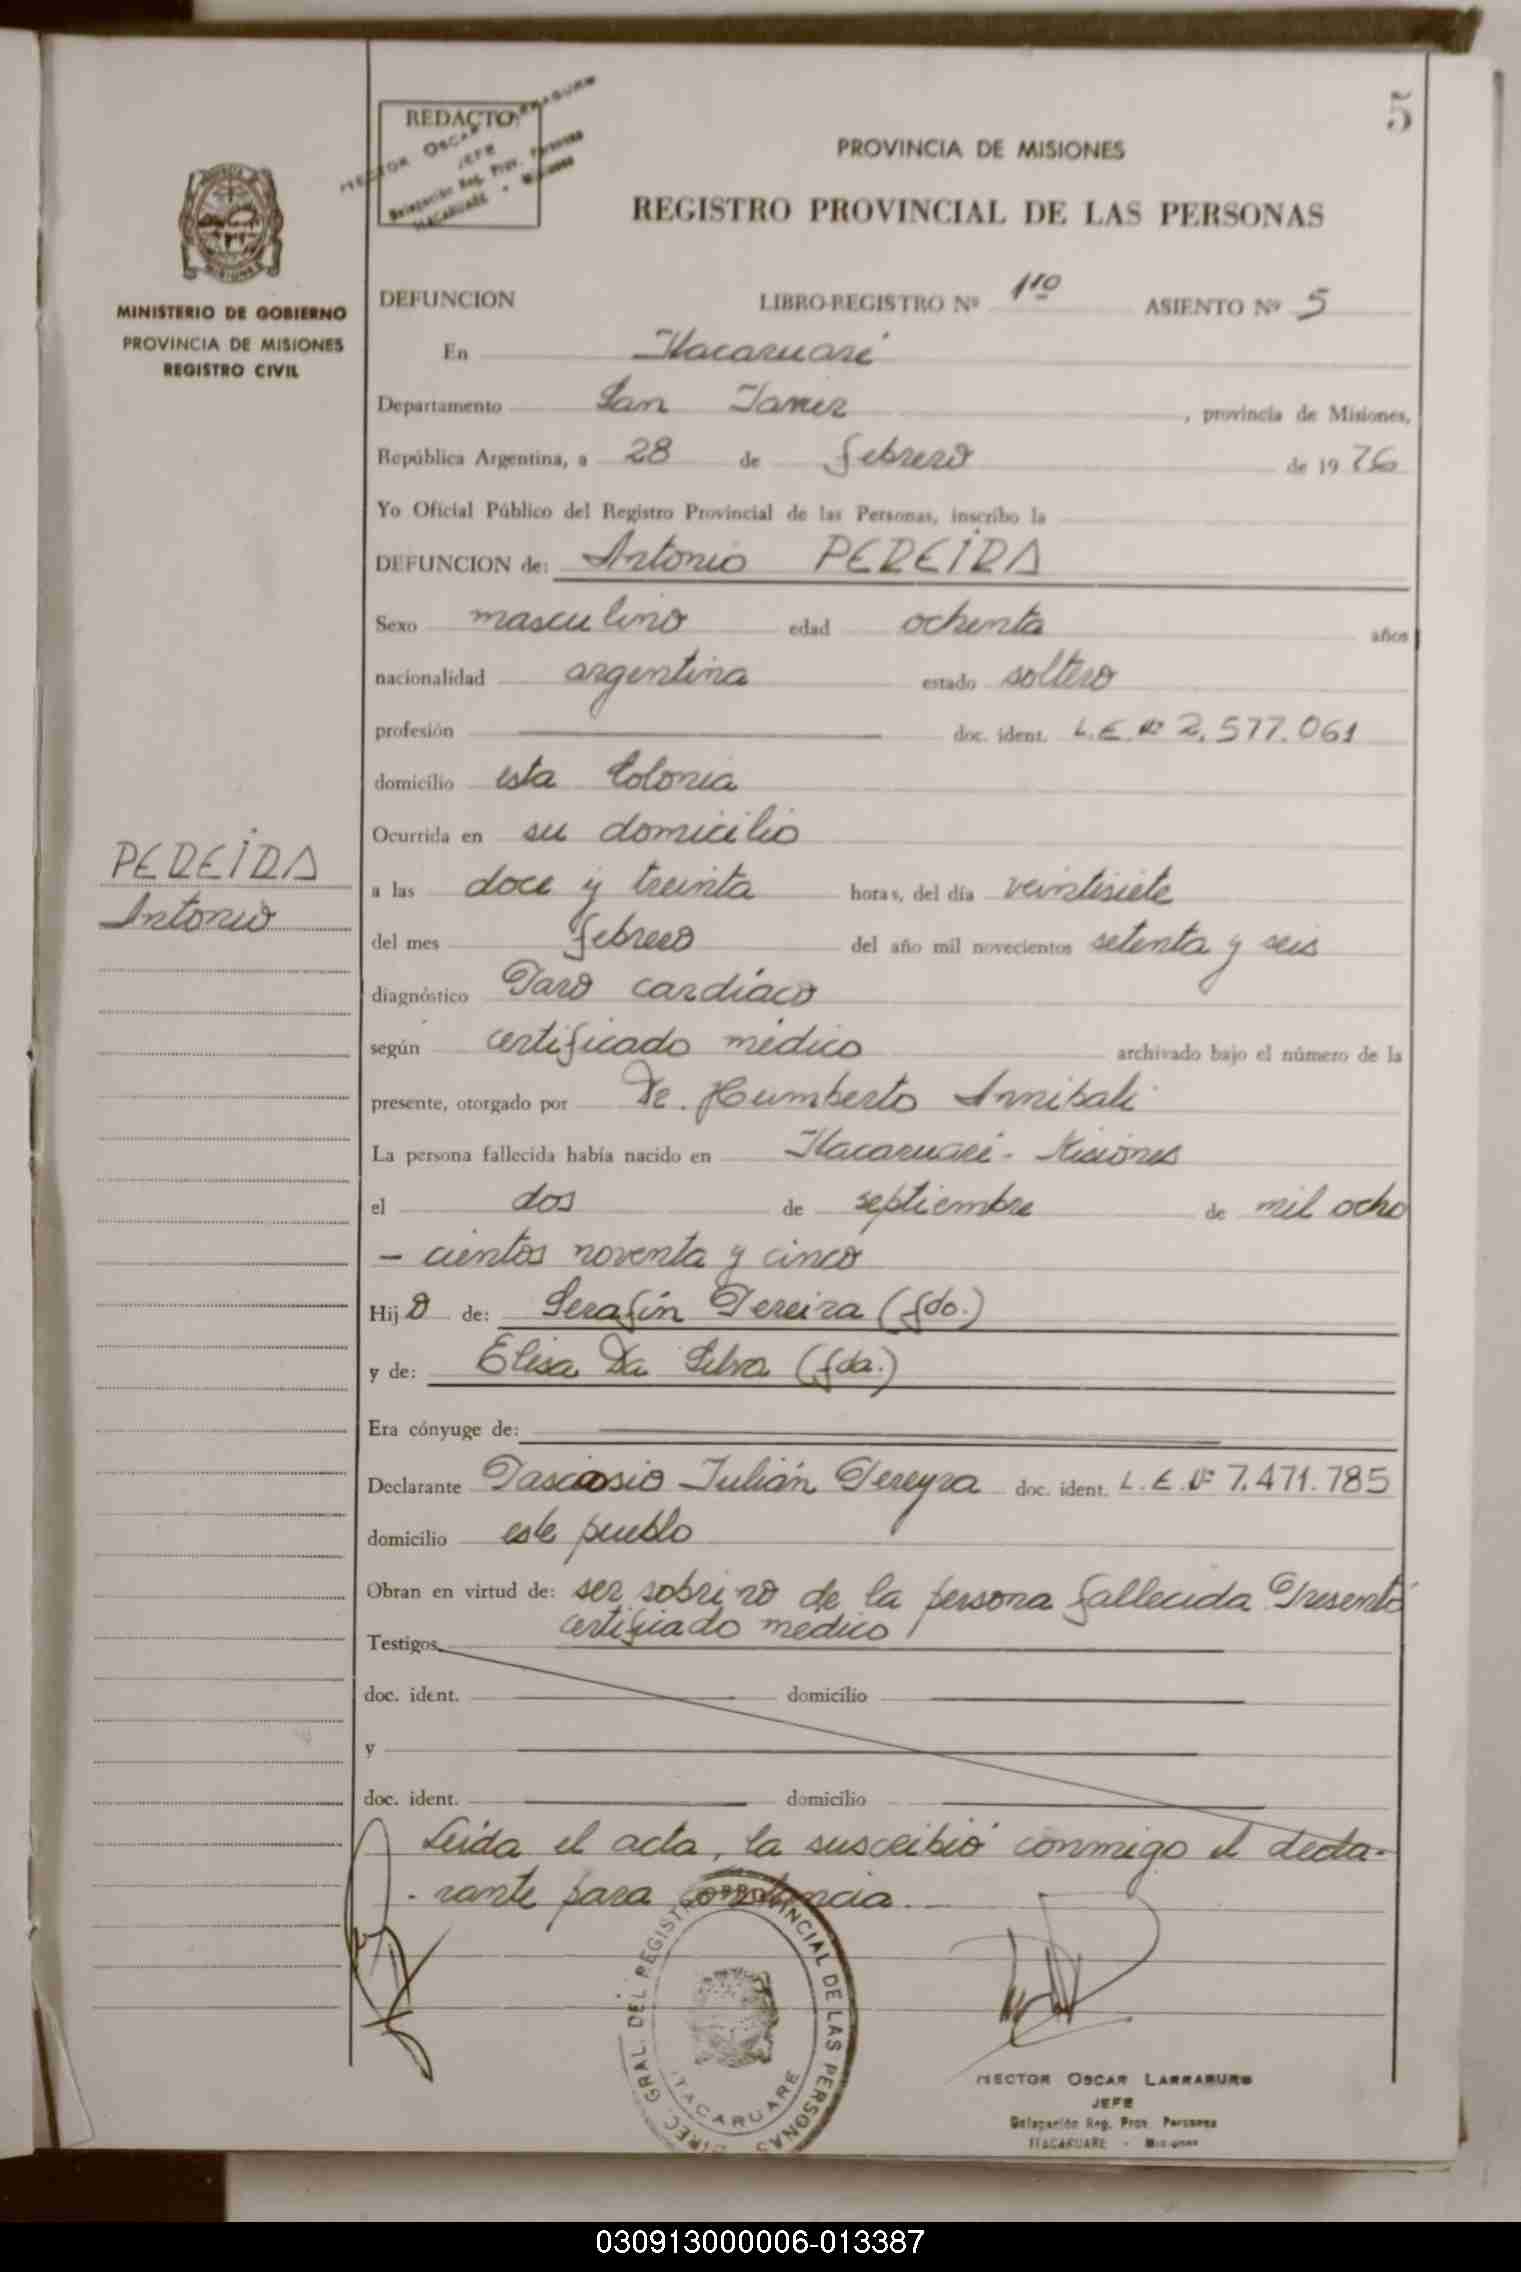 5
REDACTO:
HECTOR OSCAR LARRABURU
JEFE
Delegación Reg. Prov. Personas
ITACARUARE - Misiones
PROVINCIA DE MISIONES
REGISTRO PROVINCIAL DE LAS PERSONAS
MISIONES
MINISTERIO DE GOBIERNO
PROVINCIA DE MISIONES
REGISTRO CIVIL
DEFUNCION LIBRO-REGISTRO Nº 1ro ASIENTO Nº 5
En Itacaruaré
Departamento San Javier, provincia de Misiones,
República Argentina, a 28 de febrero de 1976
Yo Oficial Público del Registro Provincial de las Personas, inscribo la
DEFUNCION de: Antonio PEREIRA
Sexo masculino edad ochenta años
nacionalidad argentina estado soltero
profesión doc. ident. L.E. Nº 2.577.061
domicilio esta Colonia
Ocurrida en su domicilio
PEREIRA
Antonio
a las doce y treinta horas, del día veintisiete
del mes febrero del año mil novecientos setenta y seis
diagnóstico Paro cardíaco
según certificado médico archivado bajo el número de la
presente, otorgado por Dr. Humberto Annibali
La persona fallecida había nacido en Itacaruaré - Misiones
el dos de septiembre de mil ocho
- cientos noventa y cinco
Hijo de: Serafín Pereira (fdo.)
y de: Elisa Da Silva (fda.)
Era cónyuge de:
Declarante Julián Pereyra doc. ident. L.E. Nº 7.471.785
domicilio este pueblo
Obran en virtud de: ser sobrino de la persona fallecida Presentó
certificado medico
Testigos
doc. ident. domicilio
y
doc. ident. domicilio
Leída el acta, la suscribió conmigo el decla-
- rante para constancia
DIREC. GRAL. DEL REGISTRO PROVINCIAL DE LAS PERSONAS
ITACARUARE
HECTOR OSCAR LARRABURU
JEFE
Delegación Reg. Prov. Personas
ITACARUARE - Misiones
030913000006-013387